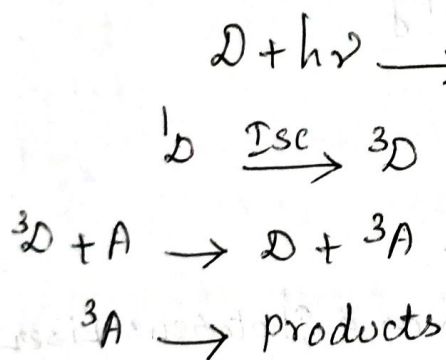 D + hν →
¹D ISC→ ³D
³D + A → D + ³A
³A → products